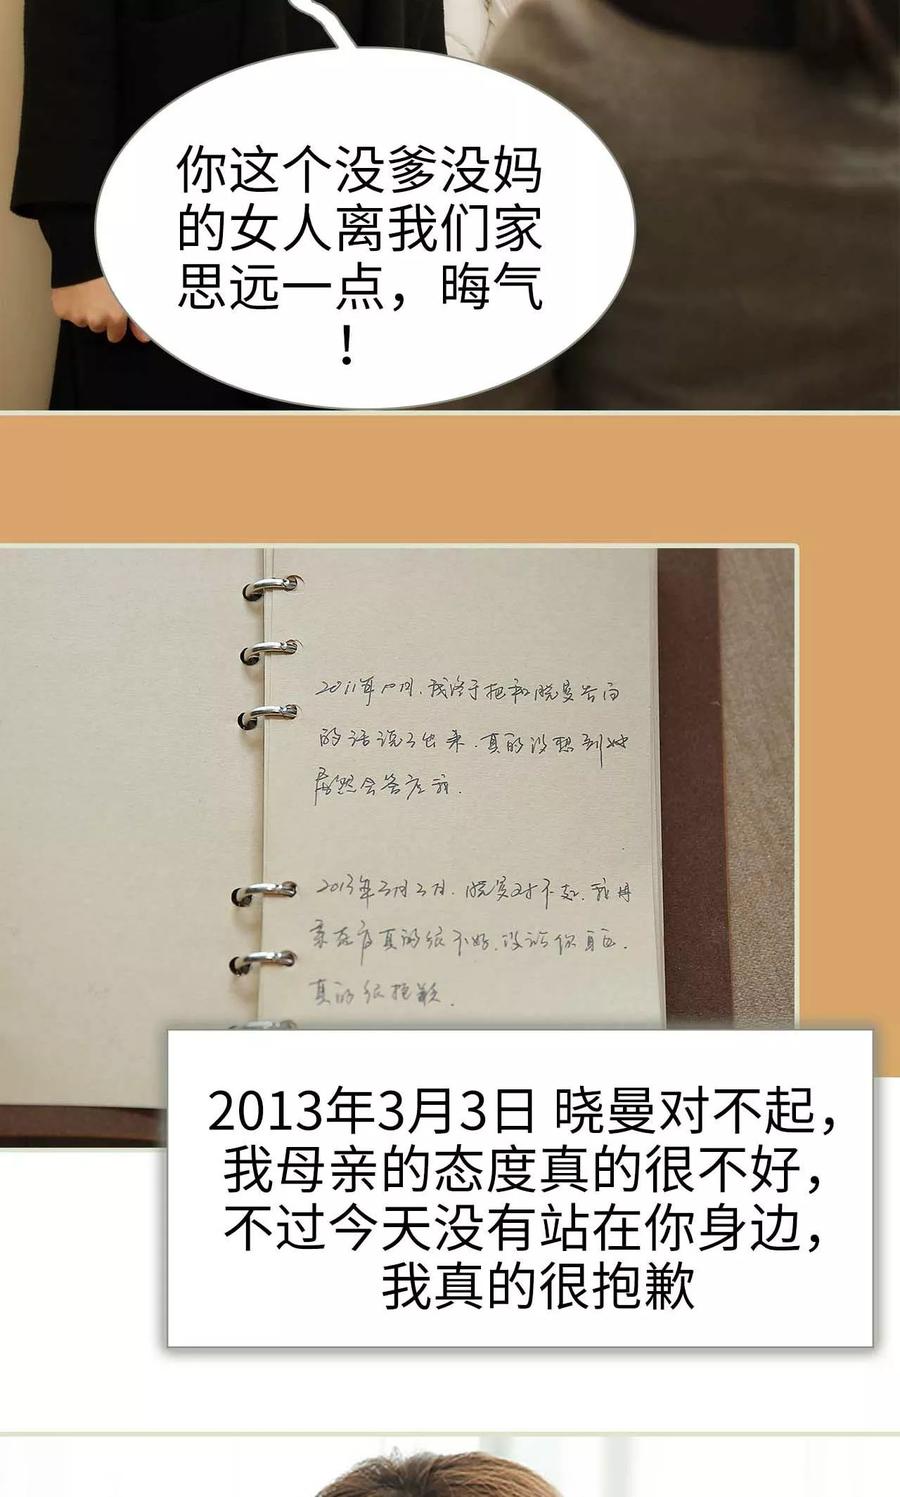 你这个没爹没妈
的女人离我们家
思远一点，晦气
！
2011年10月.我终于把和晓曼告白
的话说了出来.真的没想到她
居然会答应我.
2013年3月3日.晓曼对不起.我母
亲态度真的很不好.没站你身边.
真的很抱歉.
2013年3月3日 晓曼对不起，
我母亲的态度真的很不好，
不过今天没有站在你身边，
我真的很抱歉